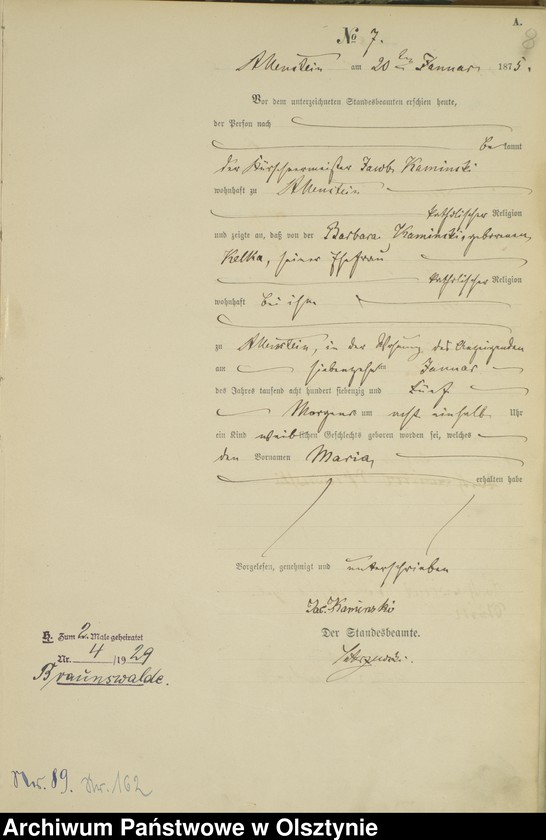 A.
8
No 7.
Allenstein am 20ten Januar 1875.
Vor dem unterzeichneten Standesbeamten erschien heute,
der Person nach
bekannt
der Kürschnermeister Jacob Kaminski
wohnhaft zu Allenstein
katholischer Religion
und zeigte an, daß von der Barbara Kaminski, geborenen
Kellka, seiner Ehefrau
katholischer Religion
wohnhaft bei ihm
zu Allenstein, in der Wohnung des Anzeigenden
am siebenzehnten Januar
des Jahres tausend acht hundert siebenzig und fünf
Morgens um acht einhalb Uhr
ein Kind weiblichen Geschlechts geboren worden sei, welches
den Vornamen Maria,
erhalten habe
Vorgelesen, genehmigt und unterschrieben
Jac. Kaminski
Der Standesbeamte.
H. Zum 2. Male geheiratet
Nr. 4/1929
Braunswalde.
Nr. 89. Nr. 162
Archiwum Państwowe w Olsztynie